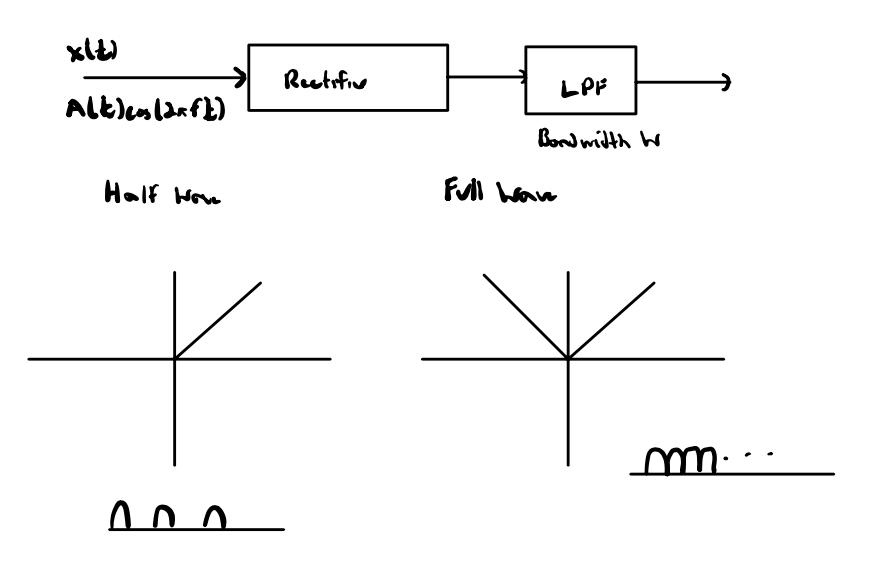 x(t)
A(t)cos(2πft)
Rectifier
LPF
Bandwidth W
Half Wave
Full Wave